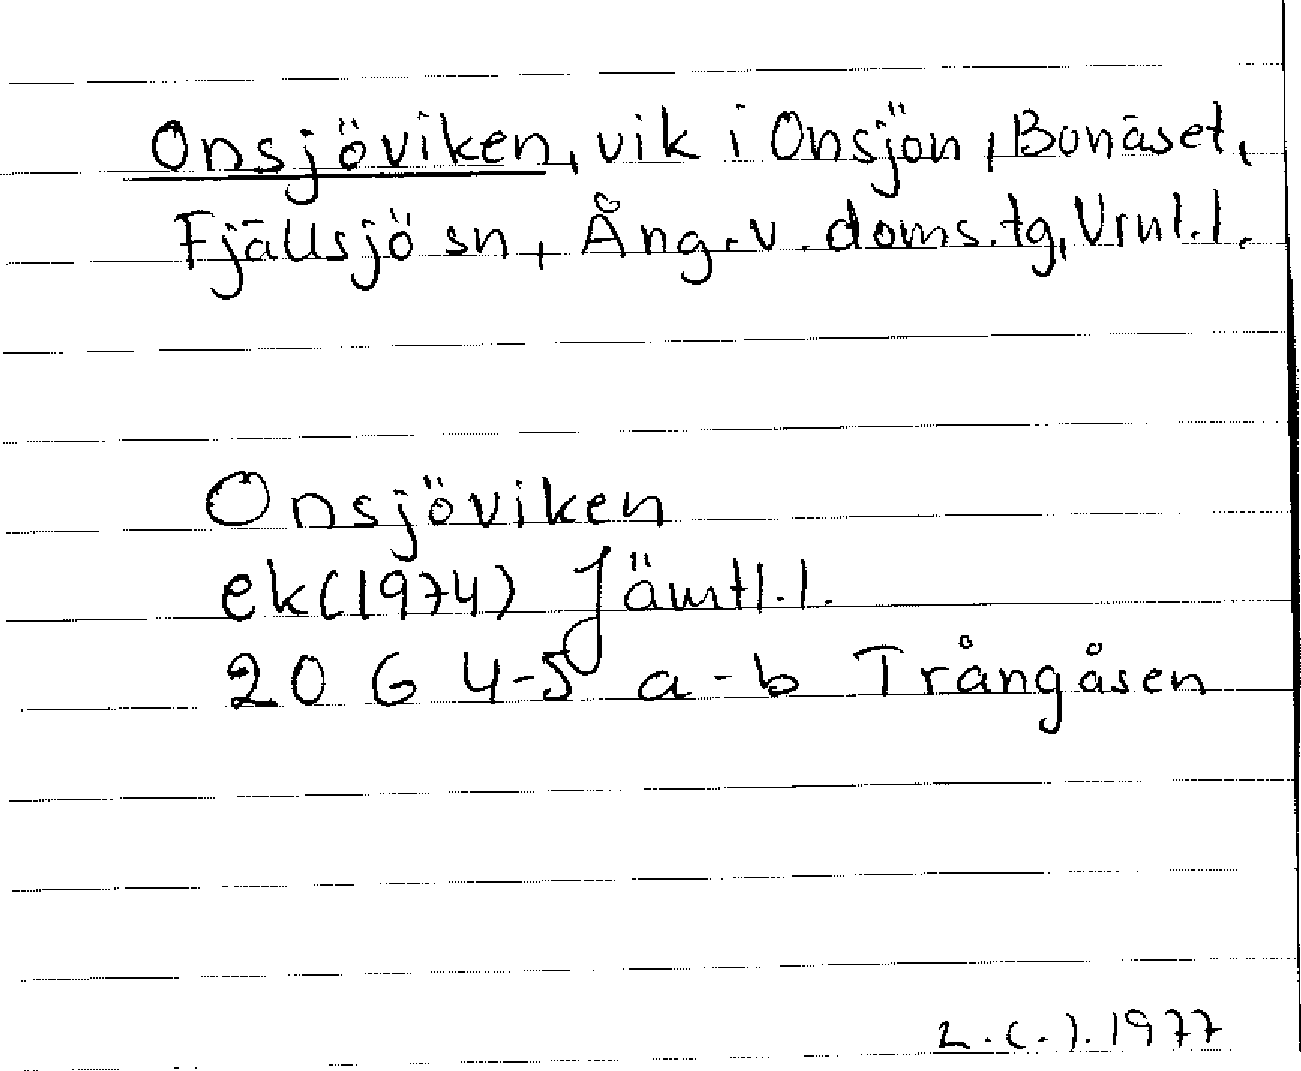 Onsjöviken, vik i Onsjön, Bonäset,
Fjällsjö sn, Ång. v. doms. tg, Vrnl.l.
Onsjöviken
ek(1974) Jämtl.l.
20 G 4-5 a-b Trångåsen
1977